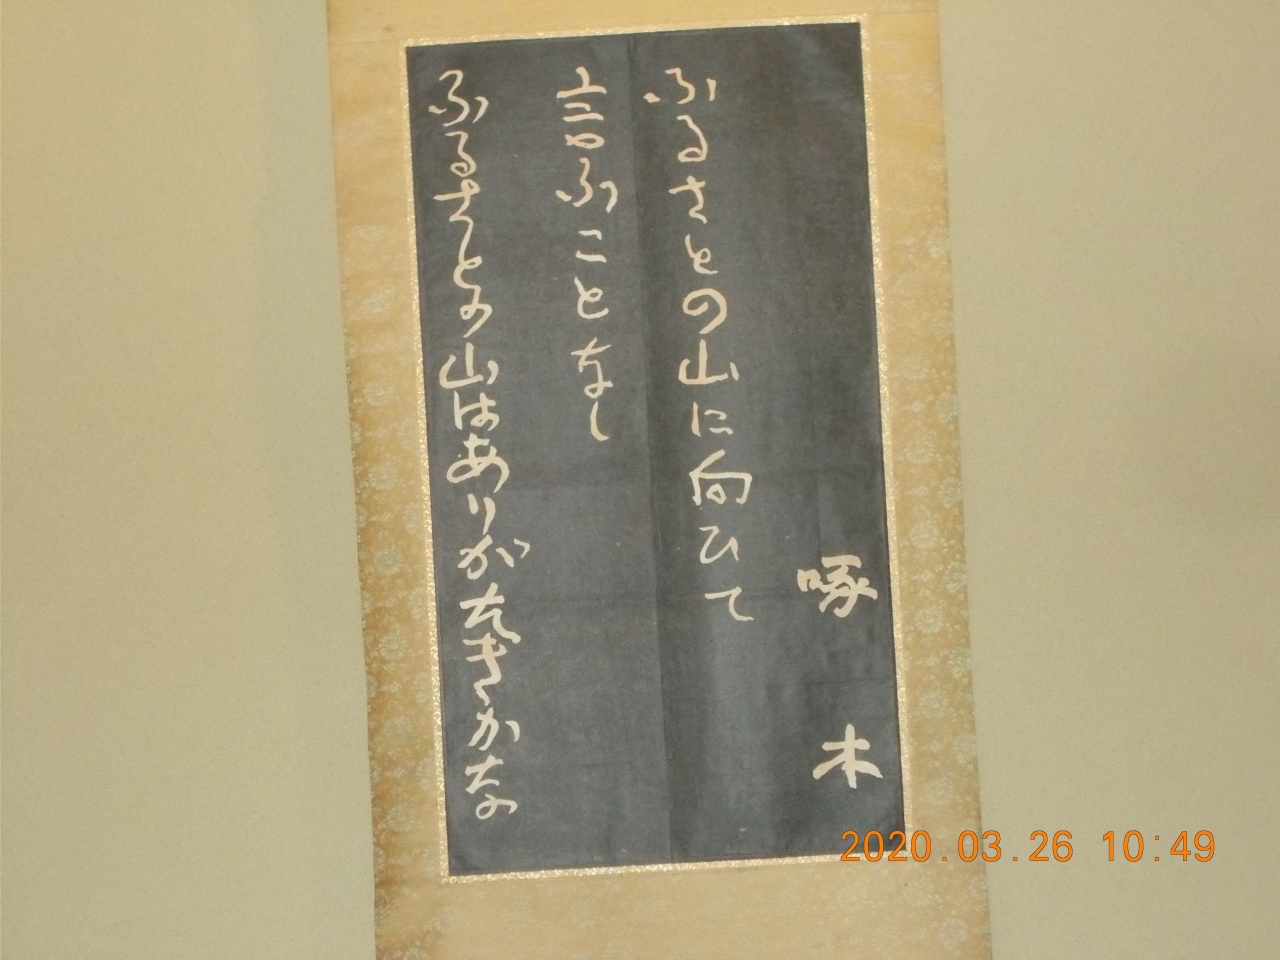 啄木
ふるさとの山に向ひて
言ふことなし
ふるさとの山はありがたきかな
2020.03.26 10:49